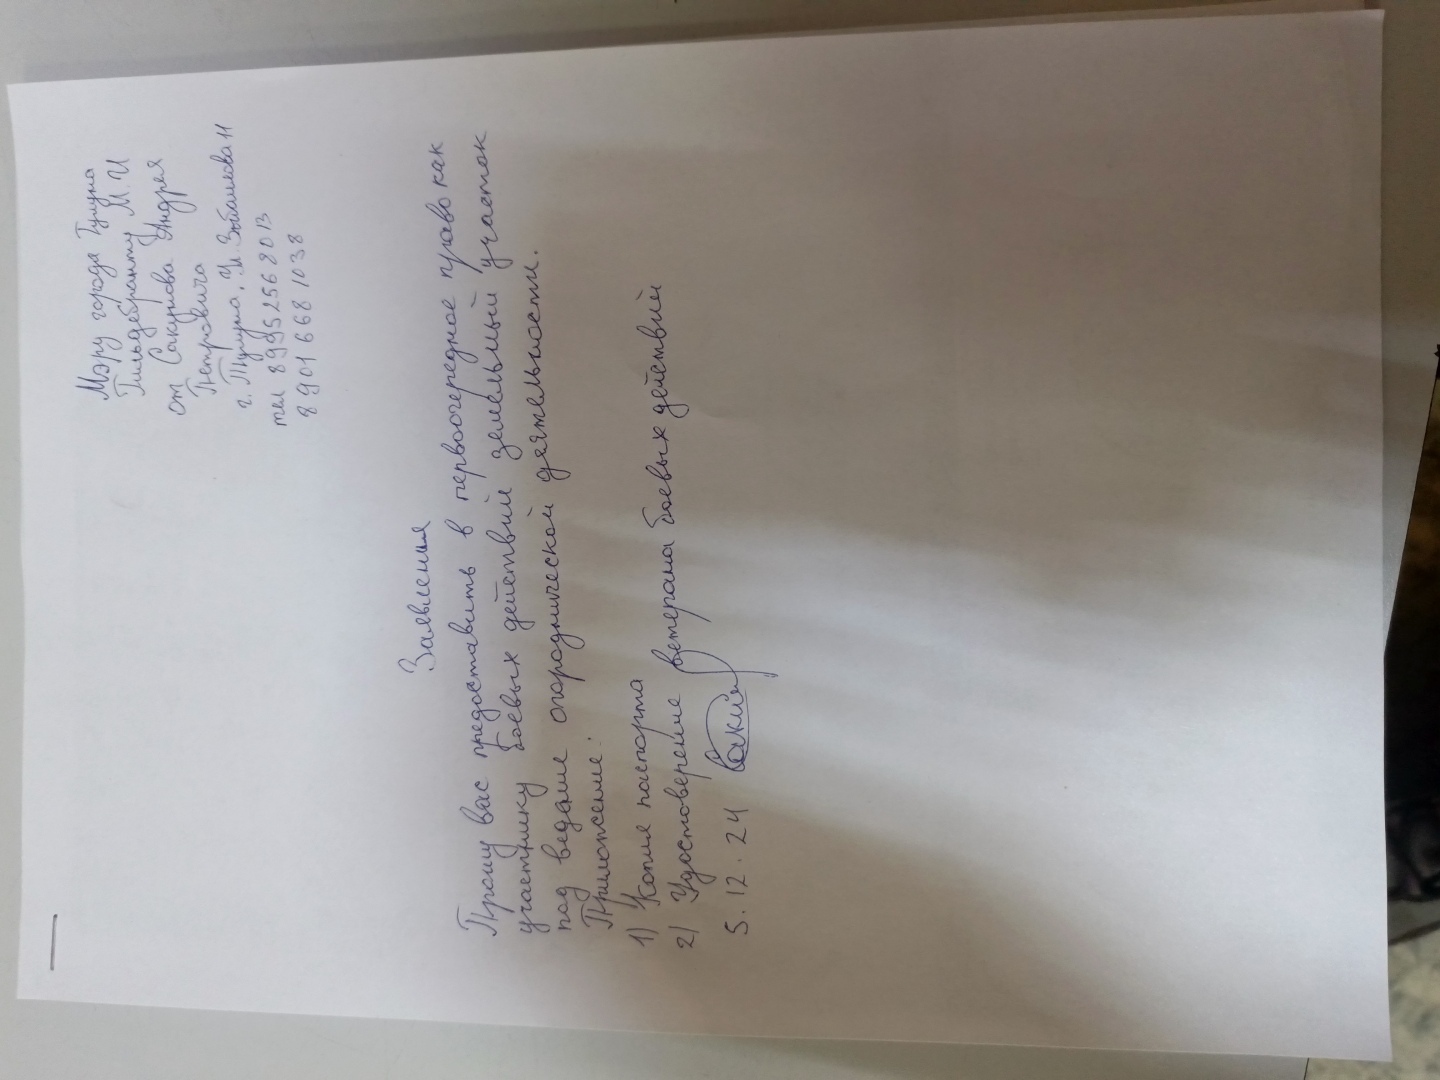 Мэру города Тулуна
Гильдебранту М.И
от Сакунова Андрея
Петровича
г. Тулуна, Ул.
тел 89952568013
8901 668 1038
Заявления
Прошу вас предоставить в первоочередное право как
участнику боевых действий земельный участок
под ведение огороднической деятельности.
Приложение:
1) Копия паспорта
2) Удостоверение ветерана боевых действий
5.12.24